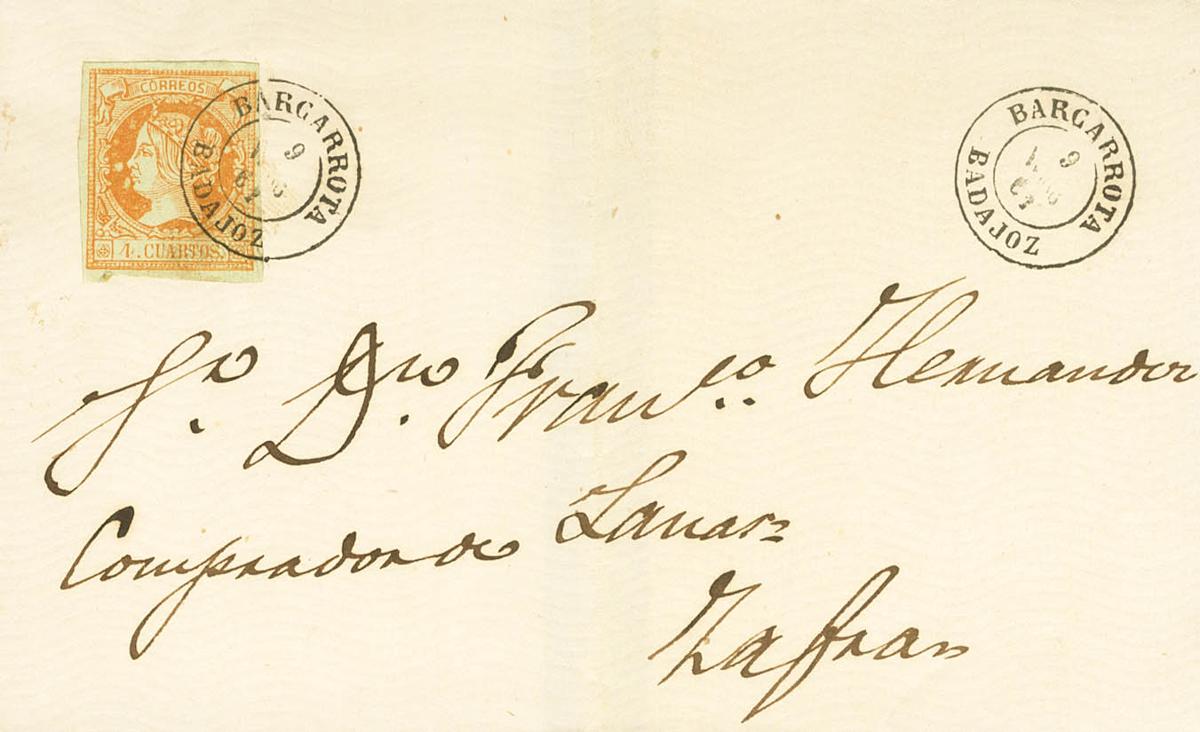 CORREOS
4. CUARTOS.
BARCARROTA
9
BADAJOZ
BARCARROTA
9
BADAJOZ
Sr. Dn. Franco. Hernandez
Comprador de Lanas
Zafra